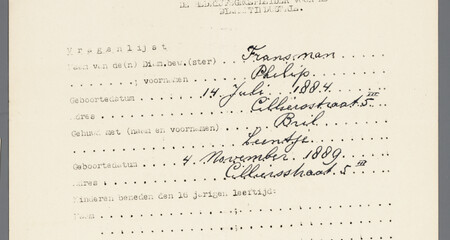 Vragenlijst
Naam van de(n) Diam.bew.(ster) Fransman
; voornamen Philip
Geboortedatum 14 Juli 1884
Adres Cilliersstraat 5 III
Gehuwd met (naam en voornamen) Bril
Leentje
Geboortedatum 4 November 1889
Adres Cilliersstraat 5 III
Kinderen beneden den 16 jarigen leeftijd:
Naam